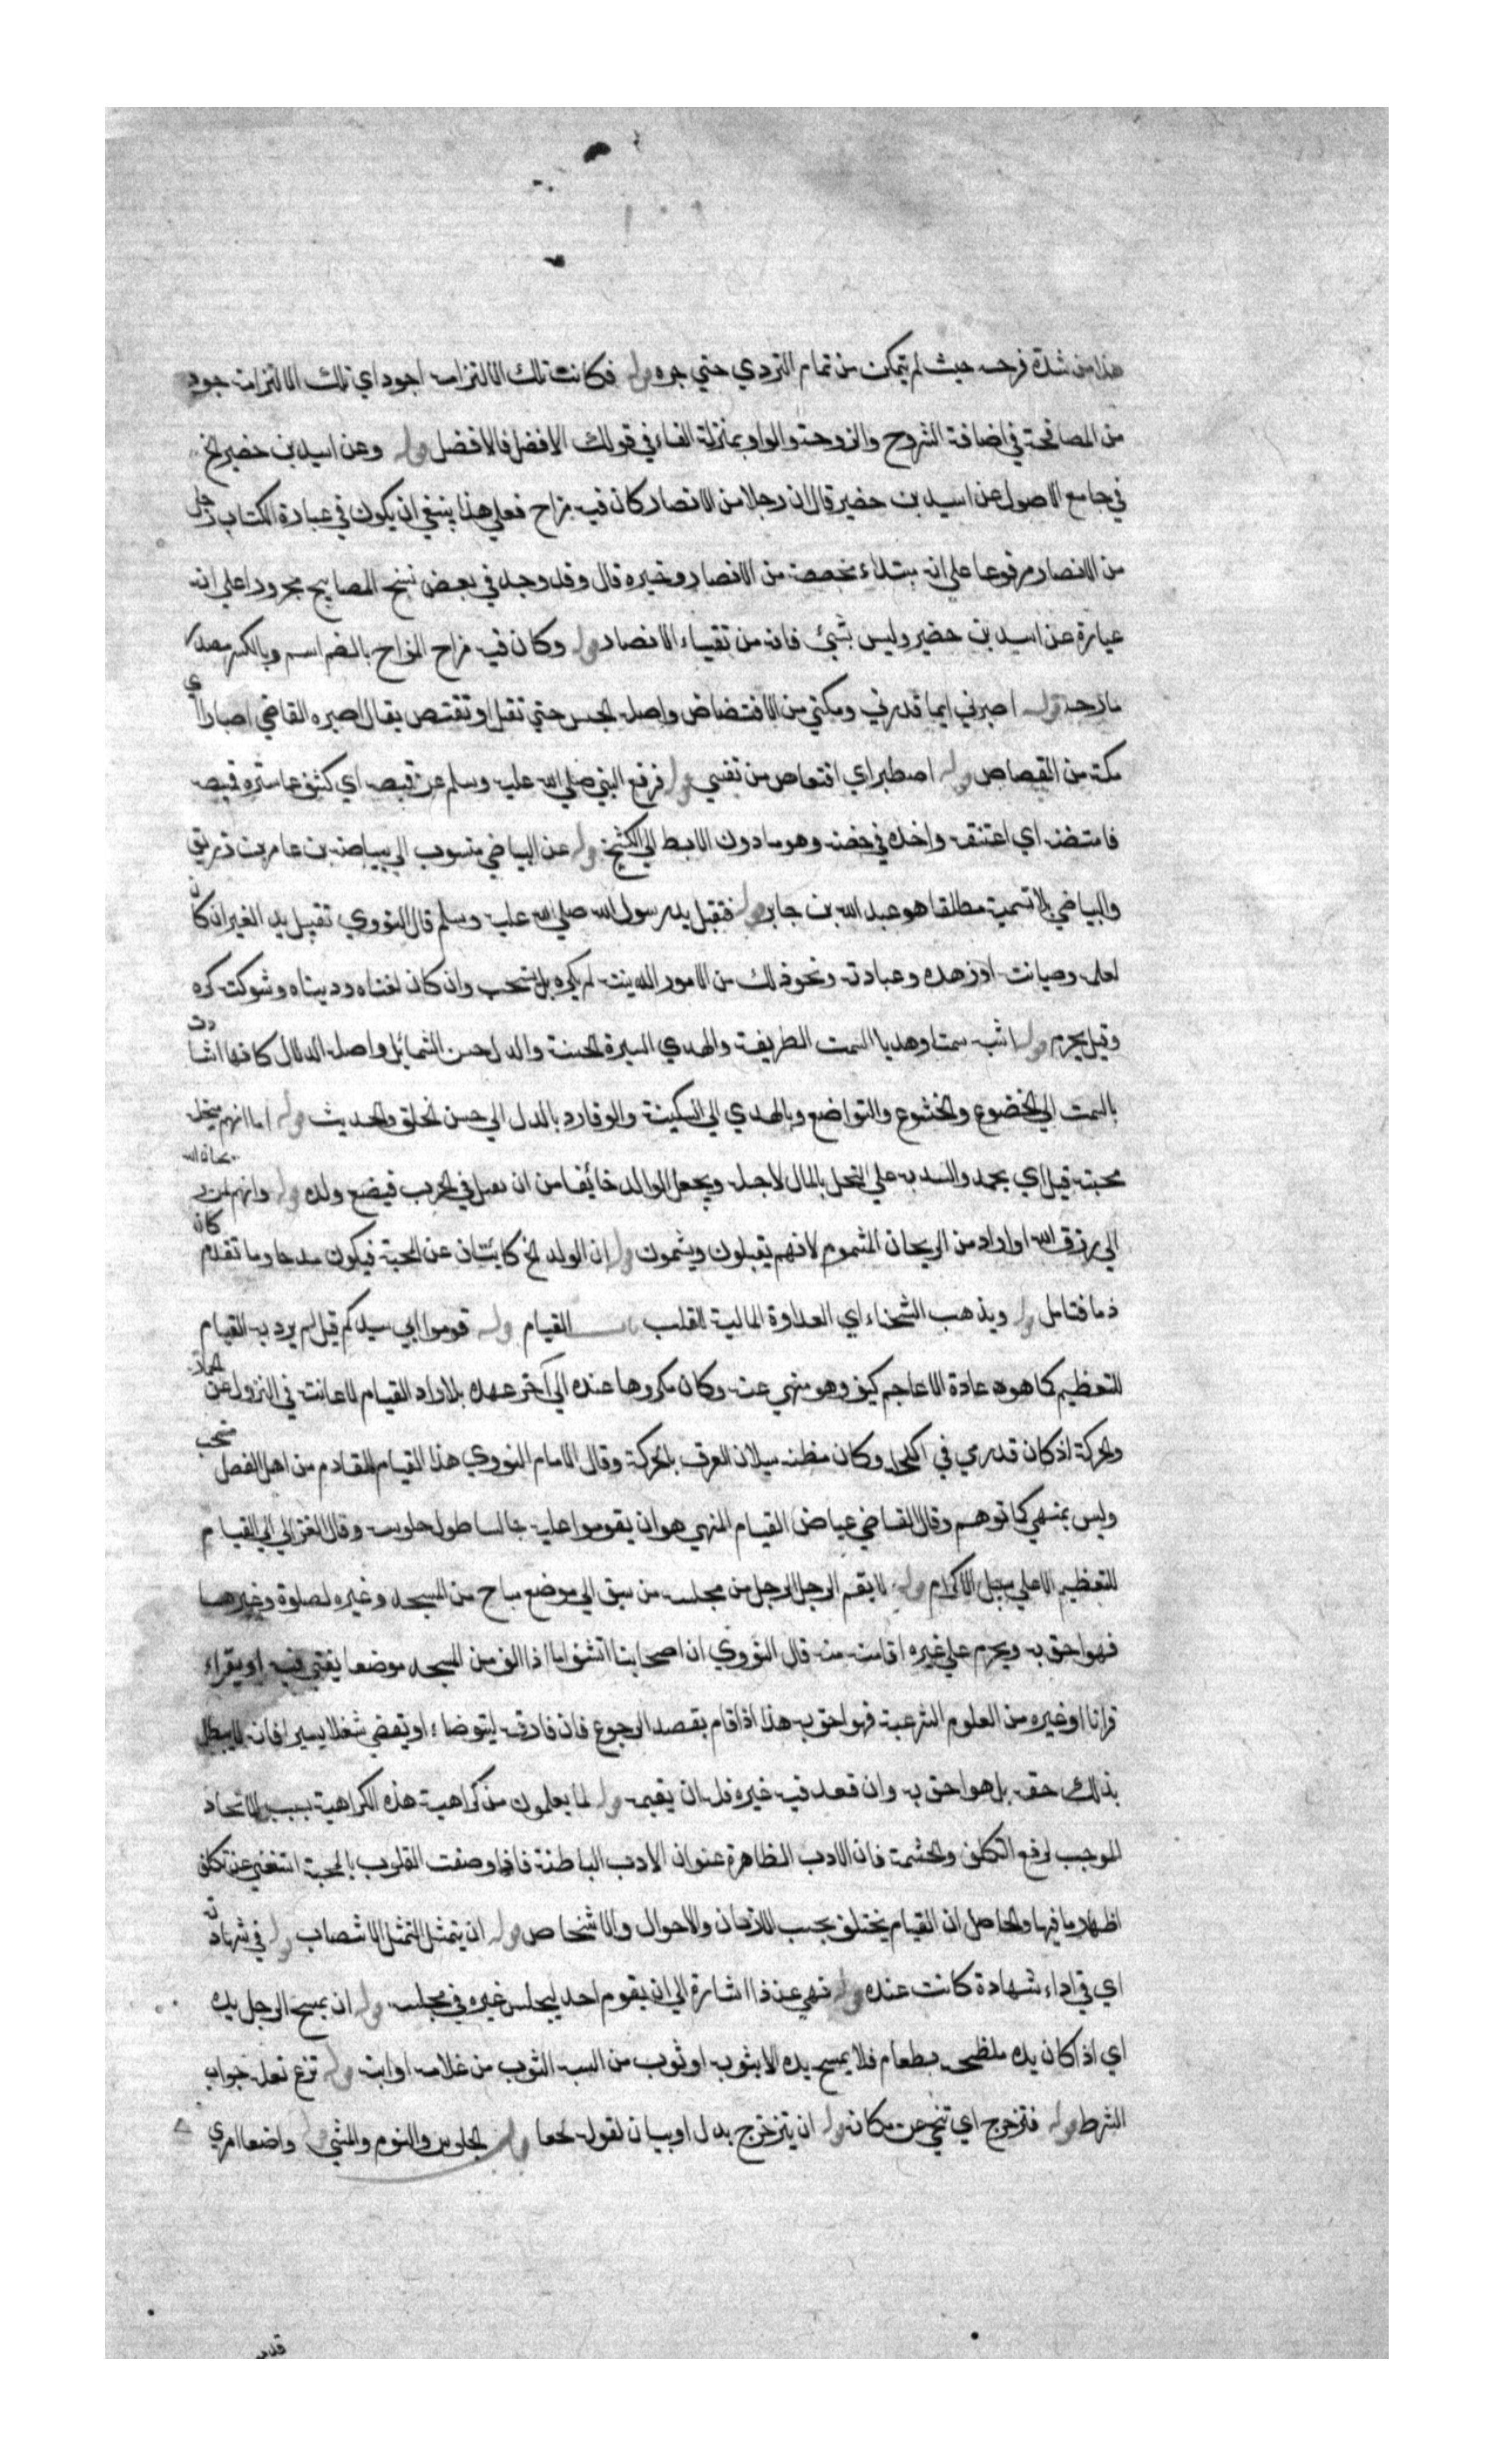 هذا من شدة فرحه حيث لم يتمكن من تمام التردي حتي جره قوله فكانت تلك الالتزامة اجود اي تلك الالتزامة اجود
من المصافحة في اضافة الشروح والزوجة والواو بمنزلة الفاء في قولك الافضل فالافضل قوله وعن اسيد بن حضير الخ
في جامع الاصول عن اسيد بن حضير قال ان رجلا من الانصار كان فيه مزاح فعلي هذا ينبغي ان يكون في عبارة الكتاب رجل
من الانصار مرفوعا علي انه مبتداء مخصصه من الانصار وخبره قال وقد وجد في بعض نسخ المصابيح مجرورا علي انه
عبارة عن اسيد بن حضير وليس بشيئ فانه من نقباء الانصار قوله وكان فيه مزاح المزاح بالضم اسم وبالكسر مصدر
مازحه قوله اصبرني ايما قدرني ومكني من الاقتضاض واصله الحبس حتي تقتل او تقتص يقال اصبره القاضي اصبارا اي
مكنه من القصاص قوله اصطبر اي اقتصاص من نفسي قوله فرفع النبي صلي الله عليه وسلم عن قميصه اي كشف عما ستره قميصه
فاحتضنه اي اعتنقه واخذه في حضنه وهو ما دون الابط الي الكشح قوله عن البياضي منسوب الي بياضة بن عامر بن زريق
والبياضي بلا تسمية مطلقا هو عبد الله بن جابر قوله فقبل يد رسول الله صلي الله عليه وسلم قال النووي تقبيل يد الغير ان كان
لعلمه وصيانته او زهده وعبادته ونحو ذلك من الامور الدينية لم يكره بل يستحب وان كان لغناه ودنيياه وشوكته كره
وقيل يحرم قوله اشبه سمتا وهديا السمت الطريقة والهدي السيرة الحسنة والدل حسن الشمائل واصله الدلال كانها اشارت
بالسمت الي الخضوع والخشوع والتواضع وبالهدي الي السكينة والوقار وبالدل الي حسن الخلق والحديث قوله اما انهم مبخلة
مجبنة قيل اي علي البخل بالمال لاجله ويجعل الوالد خائفا من ان يقتل في الحرب فيضيع ولده قوله وانهم لمن ريحان الله
الي رزق الله او اراد من الريحان المشموم لانهم يقبلون ويشمون قوله ان الولد الخ كانيتان عن المحبة فيكون مدحا وما تقدم كان
ذما فتامل قوله ويذهب الشحناء اي العداوة المالية للقلب باب القيام قوله قوموا الي سيدكم قيل لم يرد به القيام
للتعظيم كما هو عادة الاعاجم كيف وهو منهي عنه وكان مكروها عنده الي آخر عهده بل اراد القيام للاعانة في النزول عن الحمار
والحركة اذ كان قد رمي في اكحله وكان مظنة سيلان العرق بالحركة وقال الامام النووي هذا القيام للقادم من اهل الفضل مستحب
وليس بمنهي كما توهم وقال القاضي عياض القيام المنهي هو ان يقوموا عليه جالسا طول جلوسه وقال الغزالي القيام
للتعظيم لا علي سبيل الاكرام قوله لا يقم الرجل الرجل من مجلسه من سبق الي موضع مباح من المسجد وغيره لصلوة وغيرها
فهو احق به ويحرم علي غيره اقامته منه قال النووي ان اصحابنا استثنوا ما اذا الف من المسجد موضعا يفتي فيه او يقراء
قرانا او غيره من العلوم الشرعية فهو احق به هذا اذا قام بقصد الرجوع فان فارقه ليتوضاء او يقضي شغلا يسيرا فانه لا يبطل
بذلك حقه بل هو احق به وان قعد فيه غيره فله ان يقيمه قوله لما يعلمون من كراهيته هذه الكراهية بسبب الاتحاد
الموجب لرفع التكلف والحشمة فان الادب الظاهرة عنوان الادب الباطنة فاذا وصفت القلوب بالمحبة استغني عن تكلف
اظهار ما فيها والحاصل ان القيام يختلف بحسب الازمان والاحوال والاشخاص قوله ان يتمثل التمثل الانتصاب قوله في شهادة
اي في اداء شهادة كانت عنده قوله نهي عن ذا اشارة الي ان يقوم احد ليجلس غيره في مجلسه قوله ان يمسح الرجل يده
اي اذا كان يده ملطخة بطعام فلا يمسح يده الا بثوبه او ثوب من البسه الثوب من غلامه او ابنه قوله نزع نعله جواب
الشرط قوله فتزحزح اي تنحي عن مكانه قوله ان يتزحزح بدل او بيان لقوله لحقا قوله الجلوس والنوم والمشي قوله واضعا احدي